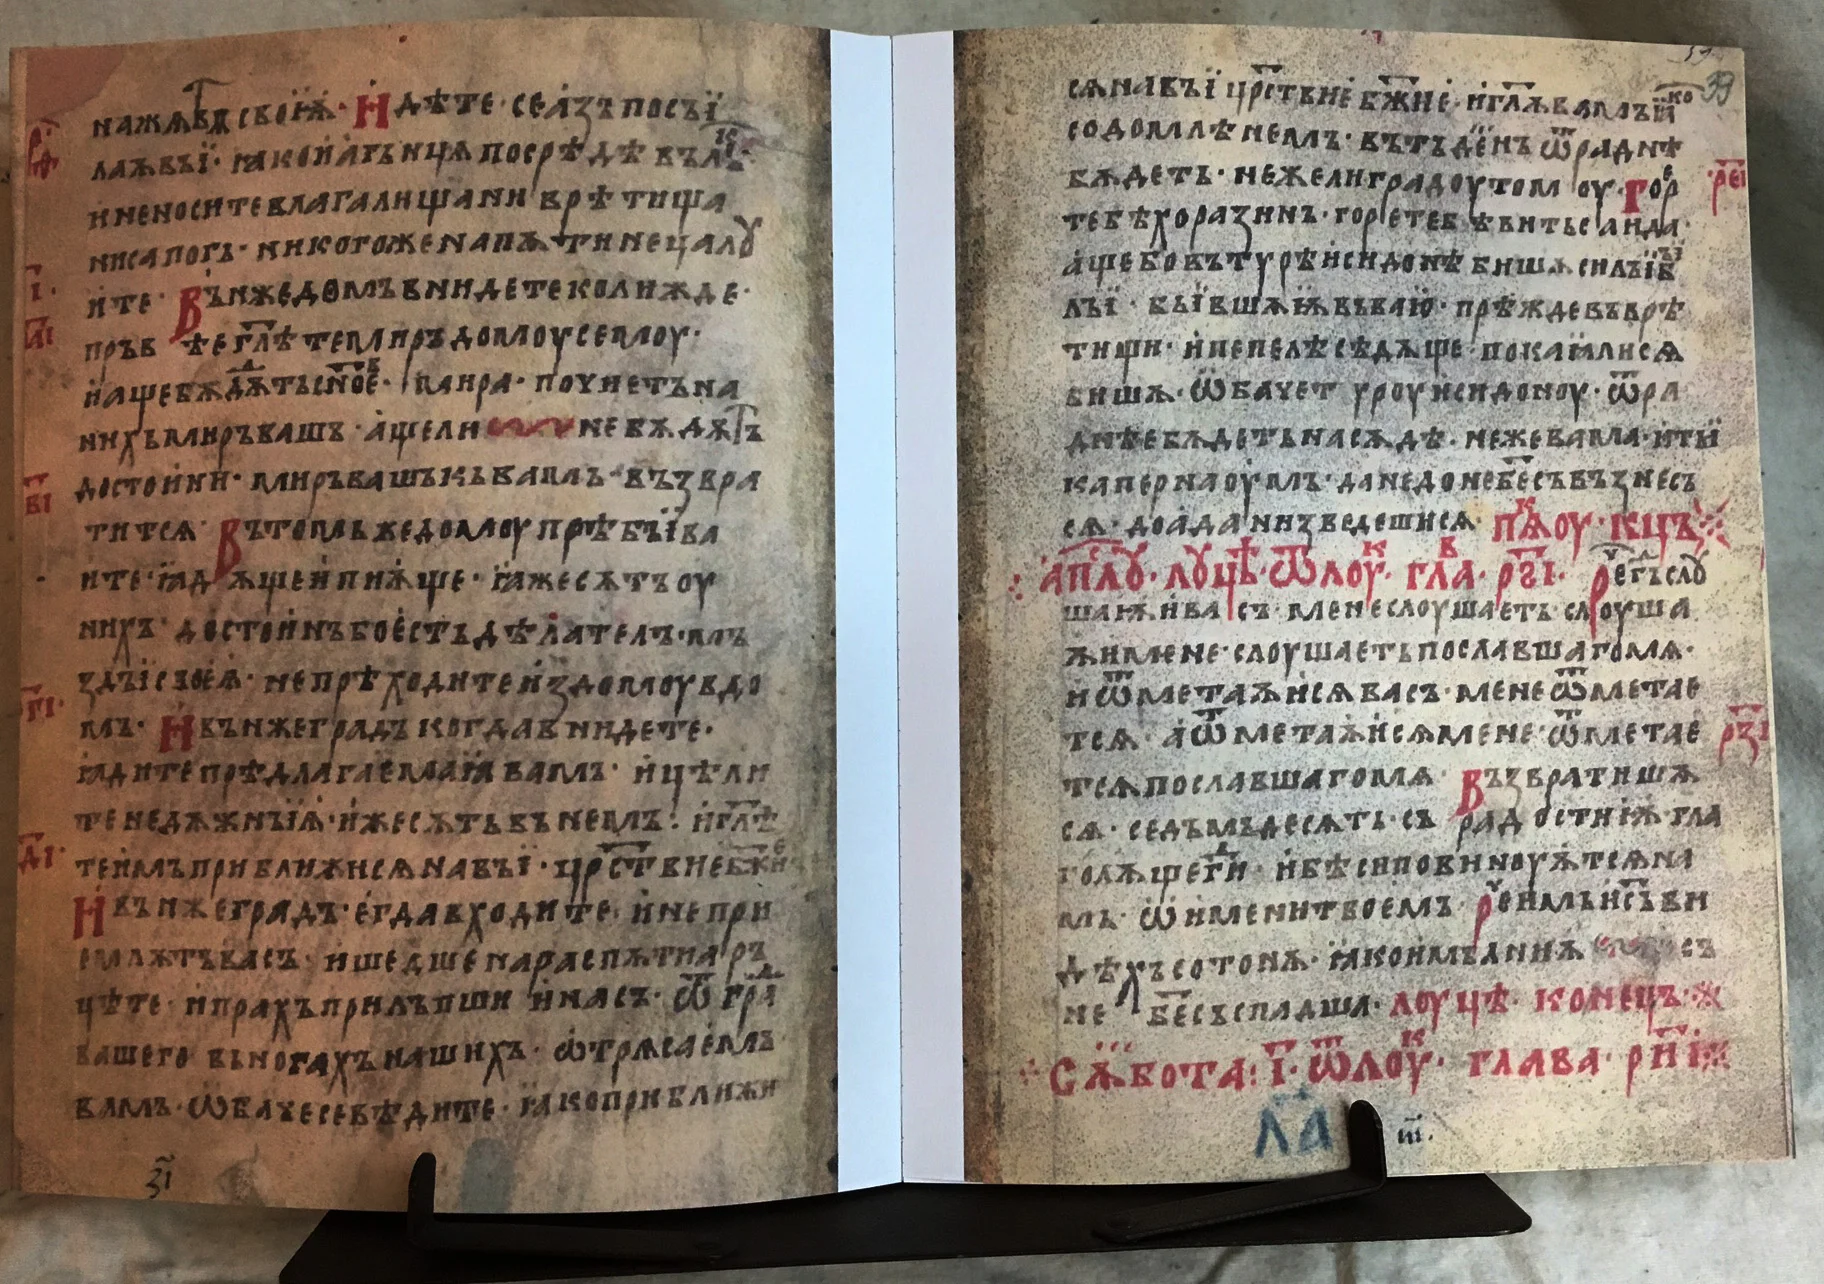 на жѧтвѫ своѭ· Идѣте· се азъ посъї
лаѭ въї· ꙗко агньцѧ посрѣдѣ влькъ·
и не носите влагалища ни врѣтища
ни сапогъ· никогоже на пѫти не цалꙋ
ите· Въ ниже домъ внидете колижде·
пръвѣе гл҃ѣте миръ домоу семоу·
и аще бѫдѫть
нихъ миръ вашъ· аще ли не бѫдѫтъ
достоини· миръ вашъ къ вамъ възвра
титсѧ· Въ томь же домоу прѣбъїва
ите· ꙗдѫще и пиѭще· ꙗже сѫтъ оу
нихъ· достоинъ бо есть дѣлателъ· мъ
здъї своеѧ· не прѣходите из домоу в до
мъ· И въ ниже градъ когда внидете·
ꙗдите прѣдлагаемаꙗ вамъ· и цѣли
те недѫжнъїѧ· иже сѫть въ немъ· и гл҃ѣ
те имъ приближисѧ на въї· црⷭ҇твие бж҃ие
И въ ниже градъ· егда входите· и не при
емлѫтъ васъ· ишедше на распѫтиа ръ
цѣте· и прахъ прилъпши и насъ· ѿ граⷣ
вашего въ ногахъ нашихъ· ѡтрѧсаемъ
вамъ· ѡбаче се вѣдите· ꙗко приближи
з҃і
39
сѧ на въї црⷭ҇твие бж҃ие· и гл҃ѫ вамъ ꙗко
содомлѣнемъ· въ тъ де҃нъ ѿраднѣ
бѫдеть· неже ли градоу томоу· Горе
тебѣ хоразинъ· горе тебѣ витьсаида·
аще бо въ турѣ и сидонѣ бишѫ силъї бъї
лъї· бъївшѫѧ въ ваю· прѣжде въ врѣ
тищи· и пепелѣ сѣдѧще· покаꙗлисѧ
бишѫ· ѡбаче туроу и сидоноу· ѿра
днѣе бѫдеть на сѫдѣ· неже вама· и тъї
капернаоумъ· да не до небе҃съ възнесъ
сѧ· до ада низведешисѧ· пѧⷦ҇оу· кць
апⷭ҇лꙋ· лꙋцѣ· ѿ лоуⷦ· гла҃в· рг҃і· Рече гъ слꙋ
шаѧи васъ· мене слоушаеть слоуша
ѫи мене· слоушаеть пославшаго мѧ·
и ѿметаѫисѧ васъ· мене ѿметае
тсѧ· а ѿметаѫисѧ мене· ѿметае
тсѧ пославшаго мѧ· Възвратишѫ
сѧ· седъмьдесѧть· съ радостиѭ· гла
голѫще гⷭ҇и· и бѣси повиноуѫтсѧ на
мъ· ѡ имени твоемъ· Рече имъ ис҃ъ ви
дѣхъ сотонѫ· ꙗко млъниѫ съ
не бе҃съ спадша· лоуцѣ· конець·
Сѫбота· і҃· ѿ лоуⷦ· глава· ри҃і
л҃а